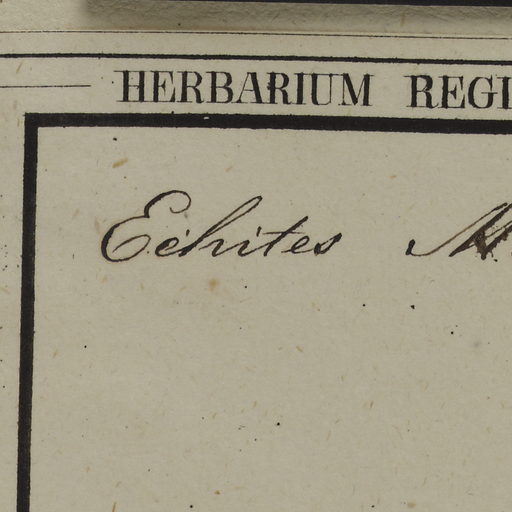 HERBARIUM REGI
Echites M